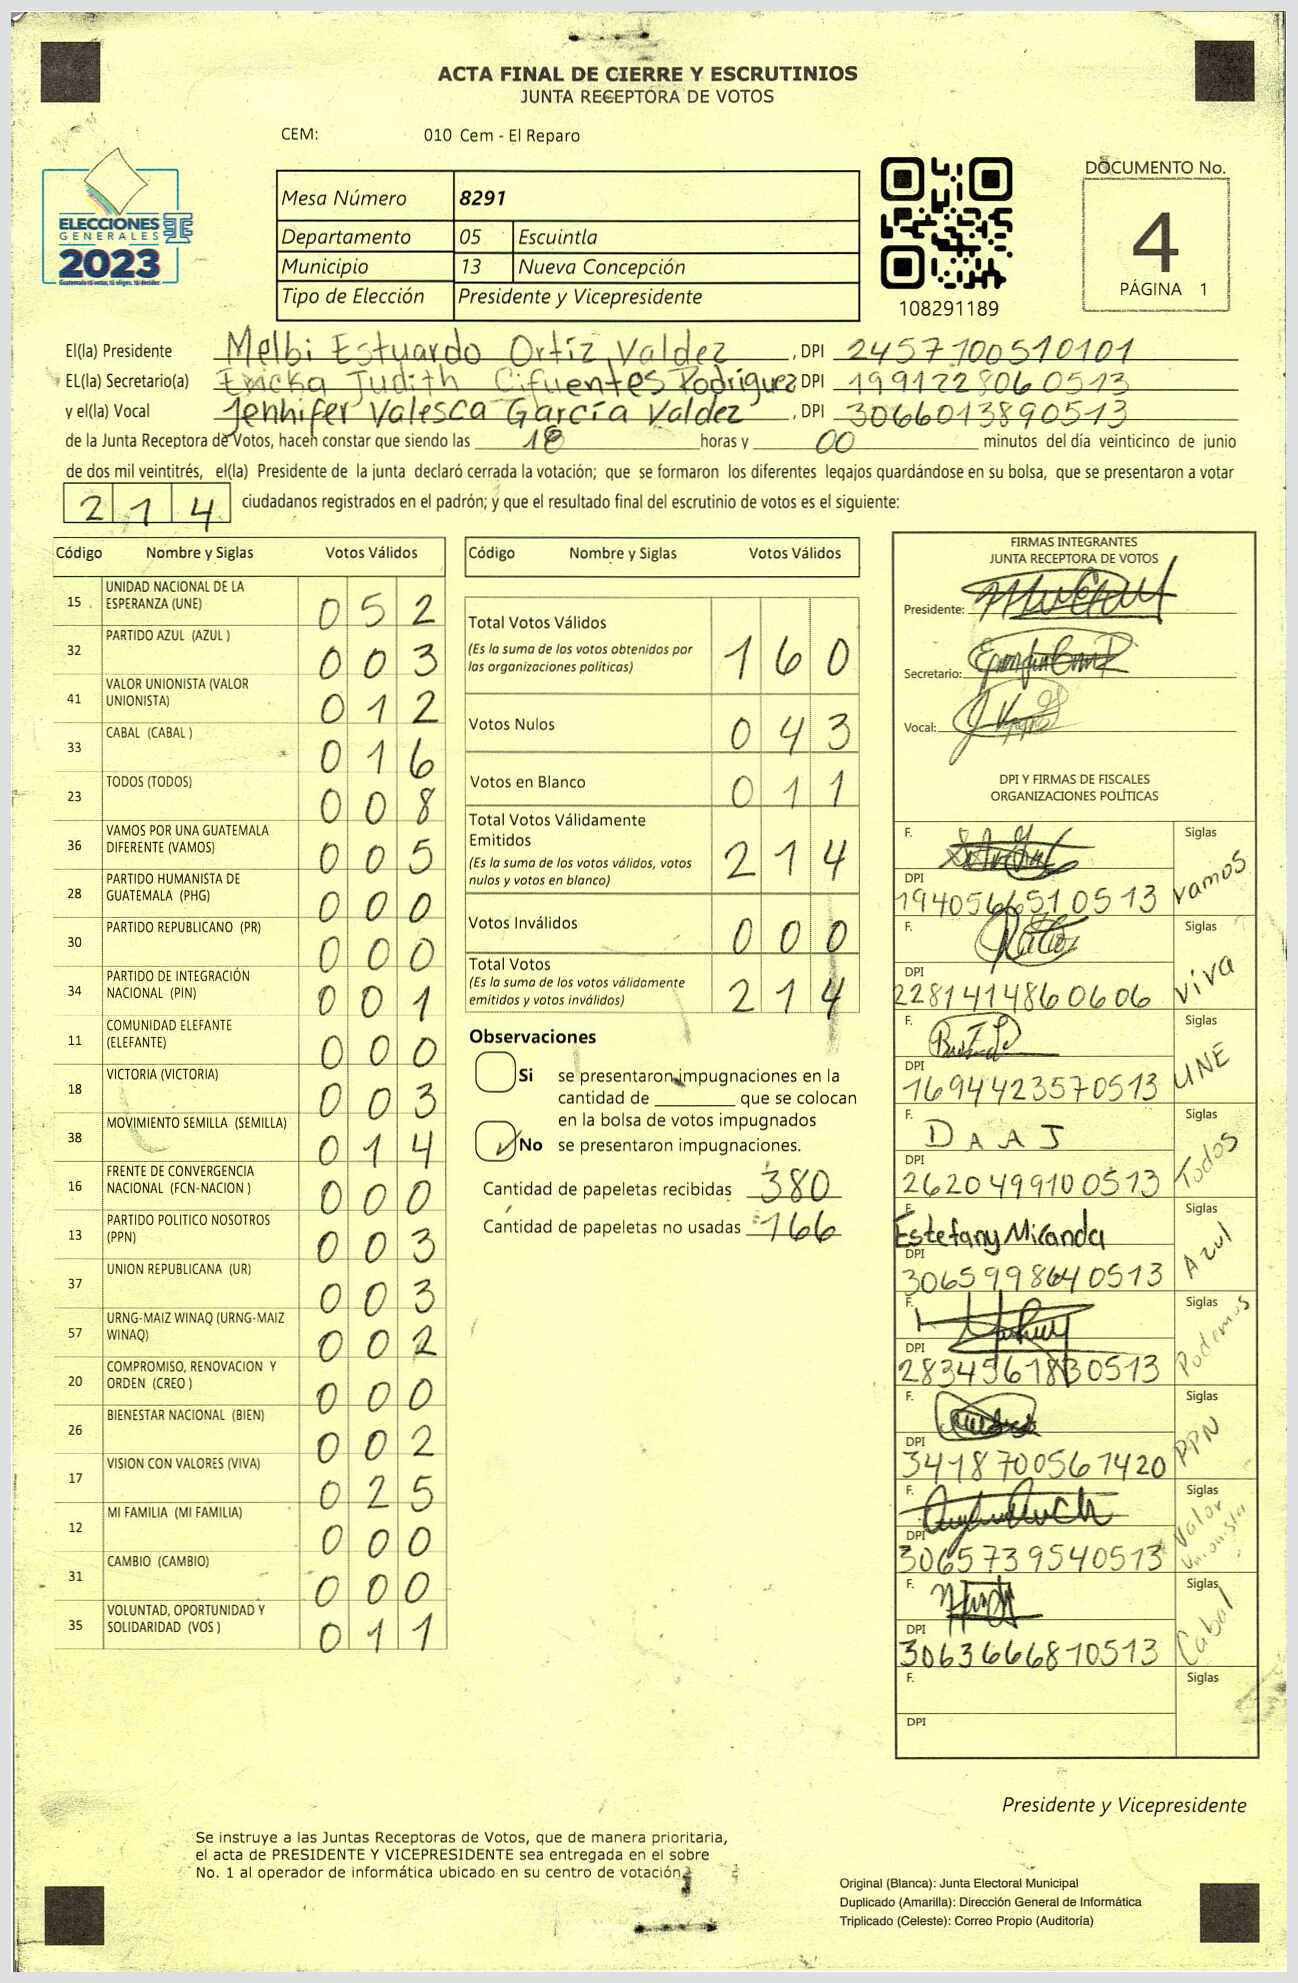 ACTA FINAL DE CIERRE Y ESCRUTINIOS
JUNTA RECEPTORA DE VOTOS
CEM: 010 Cem - El Reparo
ELECCIONES
GENERALES
2023
Mesa Número 8291
Departamento 05 Escuintla
Municipio 13 Nueva Concepción
Tipo de Elección Presidente y Vicepresidente
108291189
DOCUMENTO No.
4
PÁGINA 1
El(la) Presidente Melbi Estuardo Ortíz Valdez, DPI 2457100510101
EL(la) Secretario(a) Ericka Judith Cifuentes Rodriguez DPI 1991228060513
y el(la) Vocal Jennifer Valesca García Valdez, DPI 3066013890513
de la Junta Receptora de Votos, hacen constar que siendo las 18 horas y 00 minutos del día veinticinco de junio
de dos mil veintitrés, el(la) Presidente de la junta declaró cerrada la votación; que se formaron los diferentes legajos guardándose en su bolsa, que se presentaron a votar
214 ciudadanos registrados en el padrón; y que el resultado final del escrutinio de votos es el siguiente:
Código Nombre y Siglas Votos Válidos
15 UNIDAD NACIONAL DE LA
ESPERANZA (UNE) 052
32 PARTIDO AZUL (AZUL ) 003
41 VALOR UNIONISTA (VALOR
UNIONISTA) 012
33 CABAL (CABAL ) 016
23 TODOS (TODOS) 008
36 VAMOS POR UNA GUATEMALA
DIFERENTE (VAMOS) 005
28 PARTIDO HUMANISTA DE
GUATEMALA (PHG) 000
30 PARTIDO REPUBLICANO (PR) 000
34 PARTIDO DE INTEGRACIÓN
NACIONAL (PIN) 001
11 COMUNIDAD ELEFANTE
(ELEFANTE) 000
18 VICTORIA (VICTORIA) 003
38 MOVIMIENTO SEMILLA (SEMILLA) 014
16 FRENTE DE CONVERGENCIA
NACIONAL (FCN-NACION ) 000
13 PARTIDO POLITICO NOSOTROS
(PPN) 003
37 UNION REPUBLICANA (UR) 003
57 URNG-MAIZ WINAQ (URNG-MAIZ
WINAQ) 002
20 COMPROMISO, RENOVACION Y
ORDEN (CREO ) 000
26 BIENESTAR NACIONAL (BIEN) 002
17 VISION CON VALORES (VIVA) 025
12 MI FAMILIA (MI FAMILIA) 000
31 CAMBIO (CAMBIO) 000
35 VOLUNTAD, OPORTUNIDAD Y
SOLIDARIDAD (VOS ) 011
Código Nombre y Siglas Votos Válidos
Total Votos Válidos 160
(Es la suma de los votos obtenidos por
las organizaciones políticas)
Votos Nulos 043
Votos en Blanco 011
Total Votos Válidamente
Emitidos 214
(Es la suma de los votos válidos, votos
nulos y votos en blanco)
Votos Inválidos 000
Total Votos 214
(Es la suma de los votos válidamente
emitidos y votos inválidos)
Observaciones
Si se presentaron impugnaciones en la
cantidad de ________ que se colocan
en la bolsa de votos impugnados
No se presentaron impugnaciones.
Cantidad de papeletas recibidas 380
Cantidad de papeletas no usadas 166
FIRMAS INTEGRANTES
JUNTA RECEPTORA DE VOTOS
Presidente:
Secretario:
Vocal:
DPI Y FIRMAS DE FISCALES
ORGANIZACIONES POLÍTICAS
F. Siglas vamos
DPI
1940566510513
F. Siglas viva
DPI
2281414860606
F. Siglas UNE
DPI
1694423570513
F. DAAJ Siglas Todos
DPI
2620499100513
F. Estefany Miranda Siglas Azul
DPI
3065998640513
F. Siglas Podemos
DPI
2834561830513
F. Siglas PPN
DPI
3418700561420
F. Siglas Valor
Unionista
DPI
3065739540513
F. Siglas Cabal
DPI
3063666810513
F. Siglas
DPI
Presidente y Vicepresidente
Se instruye a las Juntas Receptoras de Votos, que de manera prioritaria,
el acta de PRESIDENTE Y VICEPRESIDENTE sea entregada en el sobre
No. 1 al operador de informática ubicado en su centro de votación.
Original (Blanca): Junta Electoral Municipal
Duplicado (Amarilla): Dirección General de Informática
Triplicado (Celeste): Correo Propio (Auditoría)